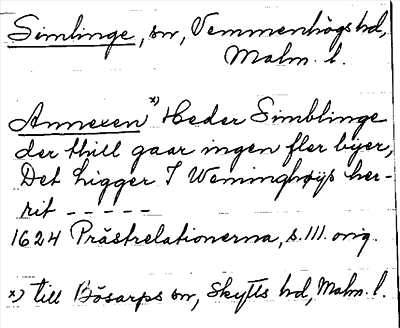 Simlinge, sn, Vemmenhögs hd,
Malm. l.
Annexen x) Heder Simblinge
der thill gaar ingen fler byer,
Det Ligger I Weminghøys her-
rit - - - - -
1624 Prästrelationerna, s. 111. orig.
x) till Bösarps sn, Skytts hd, Malm. l.